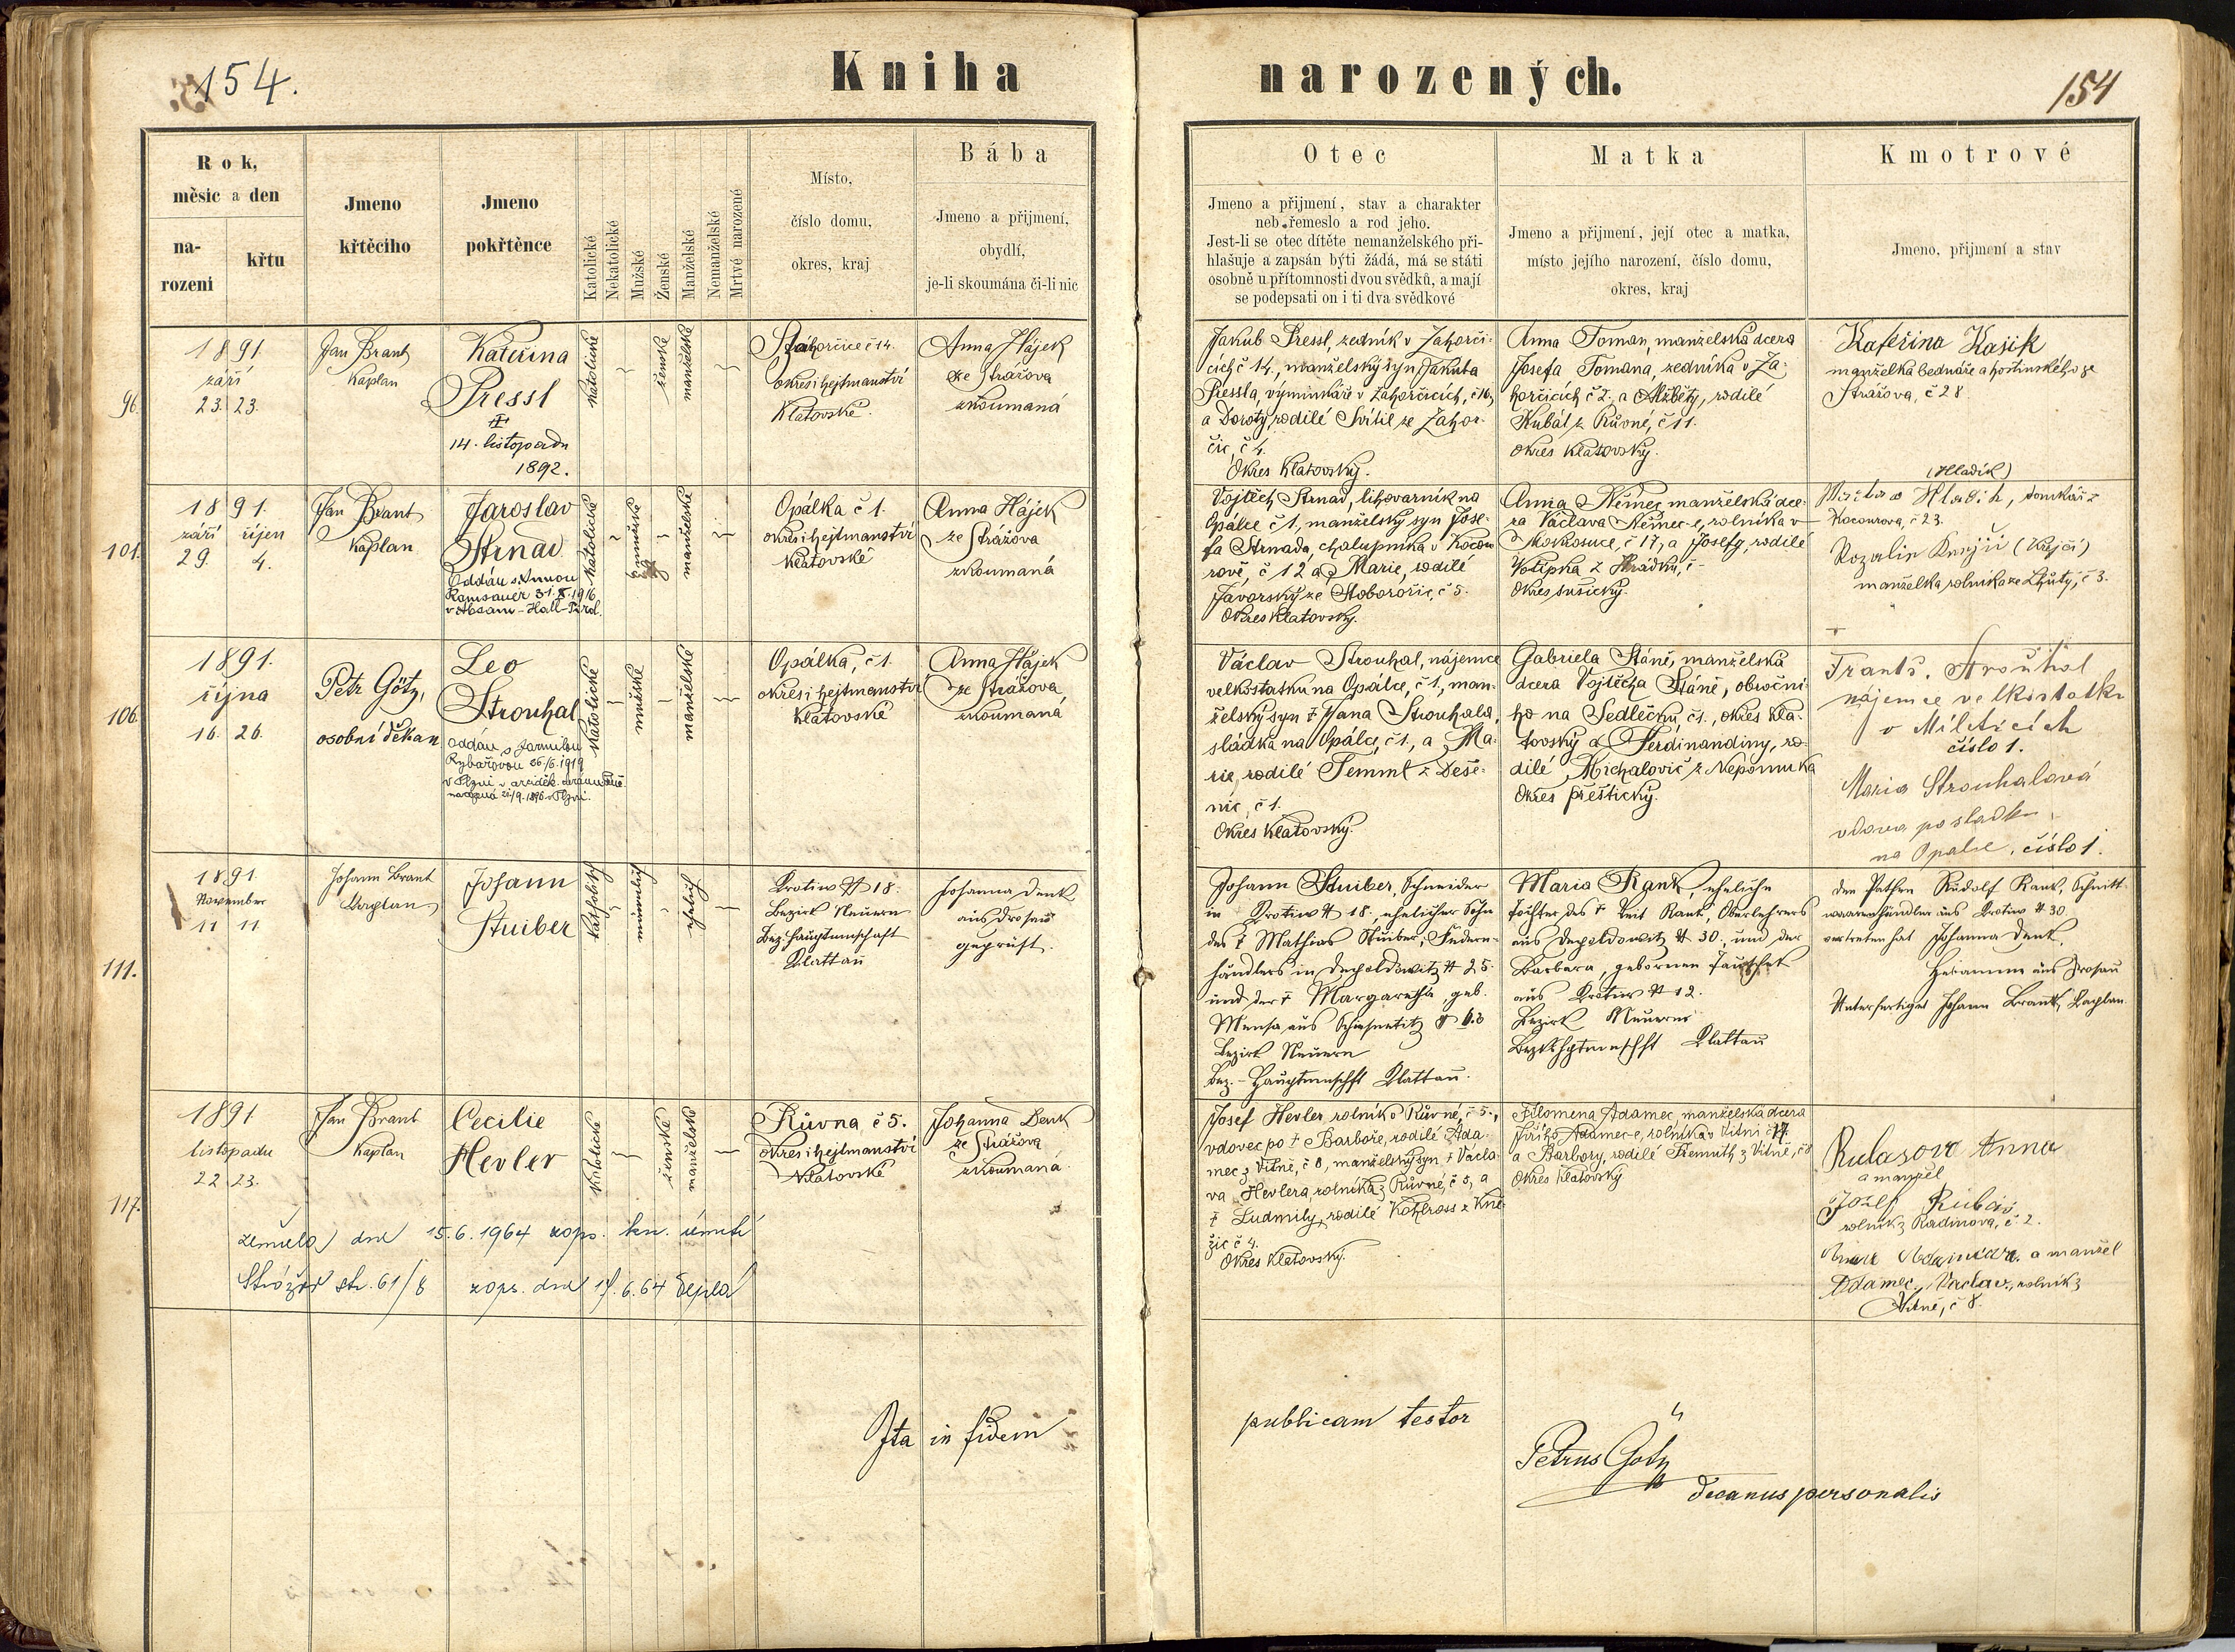 154.
Kniha narozených.
154
Rok,
měsíc a den
na-
rozeni
křtu
Jmeno
křtěcího
Jmeno
pokřtěnce
Katolické
Nekatolické
Mužské
Ženské
Manželské
Nemanželské
Mrtvé narozené
Místo,
číslo domu,
okres, kraj
Bába
Jmeno a přijmení,
obydlí,
je-li skoumána či-li nic
Otec
Jmeno a přijmení, stav a charakter
neb řemeslo a rod jeho.
Jest-li se otec dítěte nemanželského při-
hlašuje a zapsán býti žádá, má se státi
osobně u přítomnosti dvou svědků, a mají
se podepsati on i ti dva svědkové
Matka
Jmeno a přijmení, její otec a matka,
místo jejího narození, číslo domu,
okres, kraj
Kmotrové
Jmeno, přijmení a stav
96.
1891.
září
23. 23.
Jan Brant
kaplan
Kateřina
Pressl
14. listopadu
1892.
katolické
ženské
manželské
Záhorčice č 14.
okres i hejtmanství
Klatovské.
Anna Hájek
ze Strážova
zkoumaná
Jakub Pressl, zedník v Zahorči-
cích č 14, manželský syn Jakuba
Pressla, výminkáře v Zahorčicích, č 16,
a Doroty, rodilé Svítil ze Zahor-
čic, č 4.
Okres Klatovský.
Anna Toman, manželská dcera
Josefa Tomana, zedníka v Za-
horčicích č 2, a Alžběty, rodilé
Kubát z Růvné, č 11.
okres Klatovský.
Kateřina Kasík
manželka bednáře a hostinského ze
Strážova, č 28
101.
1891.
září říjen
29. 4.
Jan Brant
kaplan
Jaroslav
Strnad
Oddán s Annou
Ramsauer 31.8.1916
v Absam-Hall-Tirol.
katolické
mužské
manželské
Opálka č 1.
okres i hejtmanství
klatovské
Anna Hájek
ze Strážova
zkoumaná
Vojtěch Strnad, lihovarník na
Opálce č 1, manželský syn Jose-
fa Strnada, chalupníka v Kocou-
rově, č 12 a Marie, rodilé
Javorský ze Stobořic, č 5.
Okres Klatovský.
Anna Němec, manželská dce-
ra Václava Němec-e, rolníka v
Mokrosuce, č 17, a Josefy, rodilé
Votípka z Hrádku, č -
Okres sušický.
(Hladík)
Hladík, domkář z
Kocourova, č 23.
Rozalie Krejčí (Krejčí)
manželka rolníka ze Lhůty, č 3.
106.
1891.
října
16. 26.
Petr Götz,
osobní děkan
Leo
Strouhal
oddán s Jarmilou
Rybářovou 26/6. 1919
v Plzni v arciděk. chrámě
narozená 21/9. 1896 v Plzni.
katolické
mužské
manželské
Opálka, č 1.
okres i hejtmanství
klatovské
Anna Hájek
ze Strážova,
zkoumaná
Václav Strouhal, nájemce
velkostatku na Opálce, č 1, man-
želský syn † Jana Strouhala,
sládka na Opálce, č 1, a Ma-
rie, rodilé Temml z Deše-
nic, č 1.
Okres Klatovský.
Gabriela Stáně, manželská
dcera Vojtěcha Stáně, obroční-
ho na Sedlečku, č 1., okres Kla-
tovský a Ferdinandiny, ro-
dilé Michalovič z Nepomuka
Okres přeštický.
Frant. Strouhal
nájemce velkostatku
v Mileticích
číslo 1.
Maria Strouhalová
vdova po sládku
na Opalce, číslo 1.
111.
1891.
November
11 11
Johann Brant
Kaplan
Johann
Stuiber
katholisch
männlich
ehelich
Krotiw N 18.
Bezirk Neuern
Bez. Hauptmannschaft
Klattau
Johanna Denk
aus Drosau
geprüft.
Johann Stuiber, Schneider
in Krotiw N 18., ehelicher Sohn
des † Mathias Stuiber, Federn-
händlers in Depoldowitz N 25.
und der † Margaretha, geb.
Bezirk Neuern
Bez.-Hauptmschft Klattau.
Maria Rank, eheliche
Tochter des † Veit Rank, Oberlehrers
aus Depoldowitz N 30., und der
Barbara, gebornen
aus Krotiw N 12.
Bezirk Neuern
Bezkhptmschft Klattau
den Pathen Rudolf Rank, Schnitt-
waarenhändler aus Krotiw N 30.
vertreten hat Johanna Denk,
Hebamme aus Drosau
Unterfertiget Johann Brant, Kaplan.
117.
1891
listopadu
22 23.
Jan Brant
kaplan
Cecilie
Hevler
katolické
ženské
manželské
Růvna, č 5.
okres i hejtmanství
Klatovské
Johanna Denk
ze Strážova
zkoumaná.
zemřela dne 15.6.1964 zaps. kn. úmrtí
Strážov str. 61/8 zaps. dne 17.6.64 Šeplá
Josef Hevler, rolník v Růvné, č 5.,
vdovec po † Barboře, rodilé Ada-
mec z Vítně, č 8, manželský syn † Václa-
va Hevlera, rolníka z Růvné, č 5, a
† Ludmily, rodilé Kohlross z Kně-
žic č 4.
Okres Klatovský.
Filomena Adamec, manželská dcera
Jiřího Adamec-e, rolníka v Vítni č 17
a Barbory, rodilé Fremuth z Vítně, č 8
Okres Klatovský
Anna
a manžel
Jozef Rubáš
rolník z Radinova, č 2.
a manžel
Adamec, Václav, rolník z
Vítně, č 8.
Ita in fidem publicam testor
Petrus Götz
decanus personalis